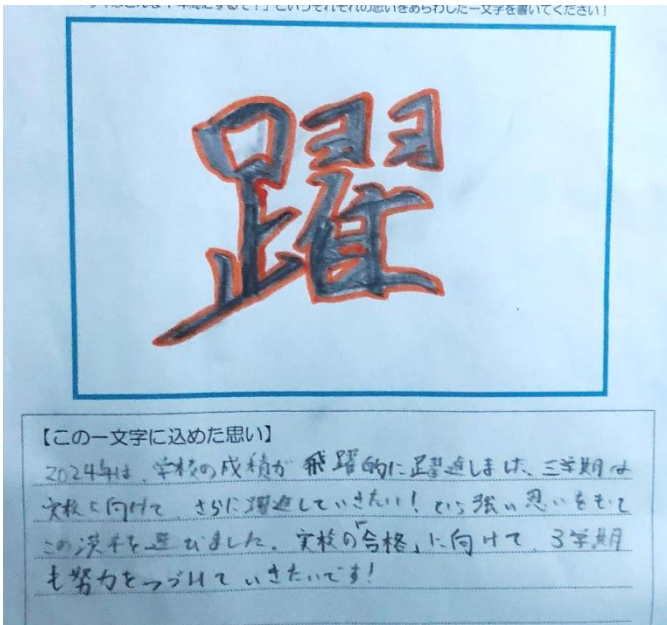 どんな1年間にするぞ！」というそれぞれの思いをあらわした一文字を書いてください！
躍
【この一文字に込めた思い】
2024年は、学校の成績が飛躍的に躍進しました。三学期は
実技に向けて、さらに躍進していきたい！という強い思いをもって
この漢字を選びました。実技の「合格」に向けて、3学期
も努力をつづけていきたいです！